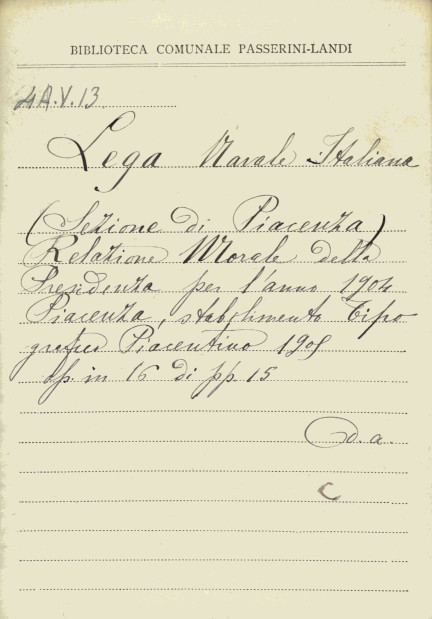 BIBLIOTECA COMUNALE PASSERINI-LANDI
4A.V.13
Lega Navale Italiana
(Sezione di Piacenza)
Relazione Morale della
Presidenza per l'anno 1904
Piacenza, stabilimento Tipo
grafico Piacentino 1905
op. in 16 di pp. 15
D. a.
C